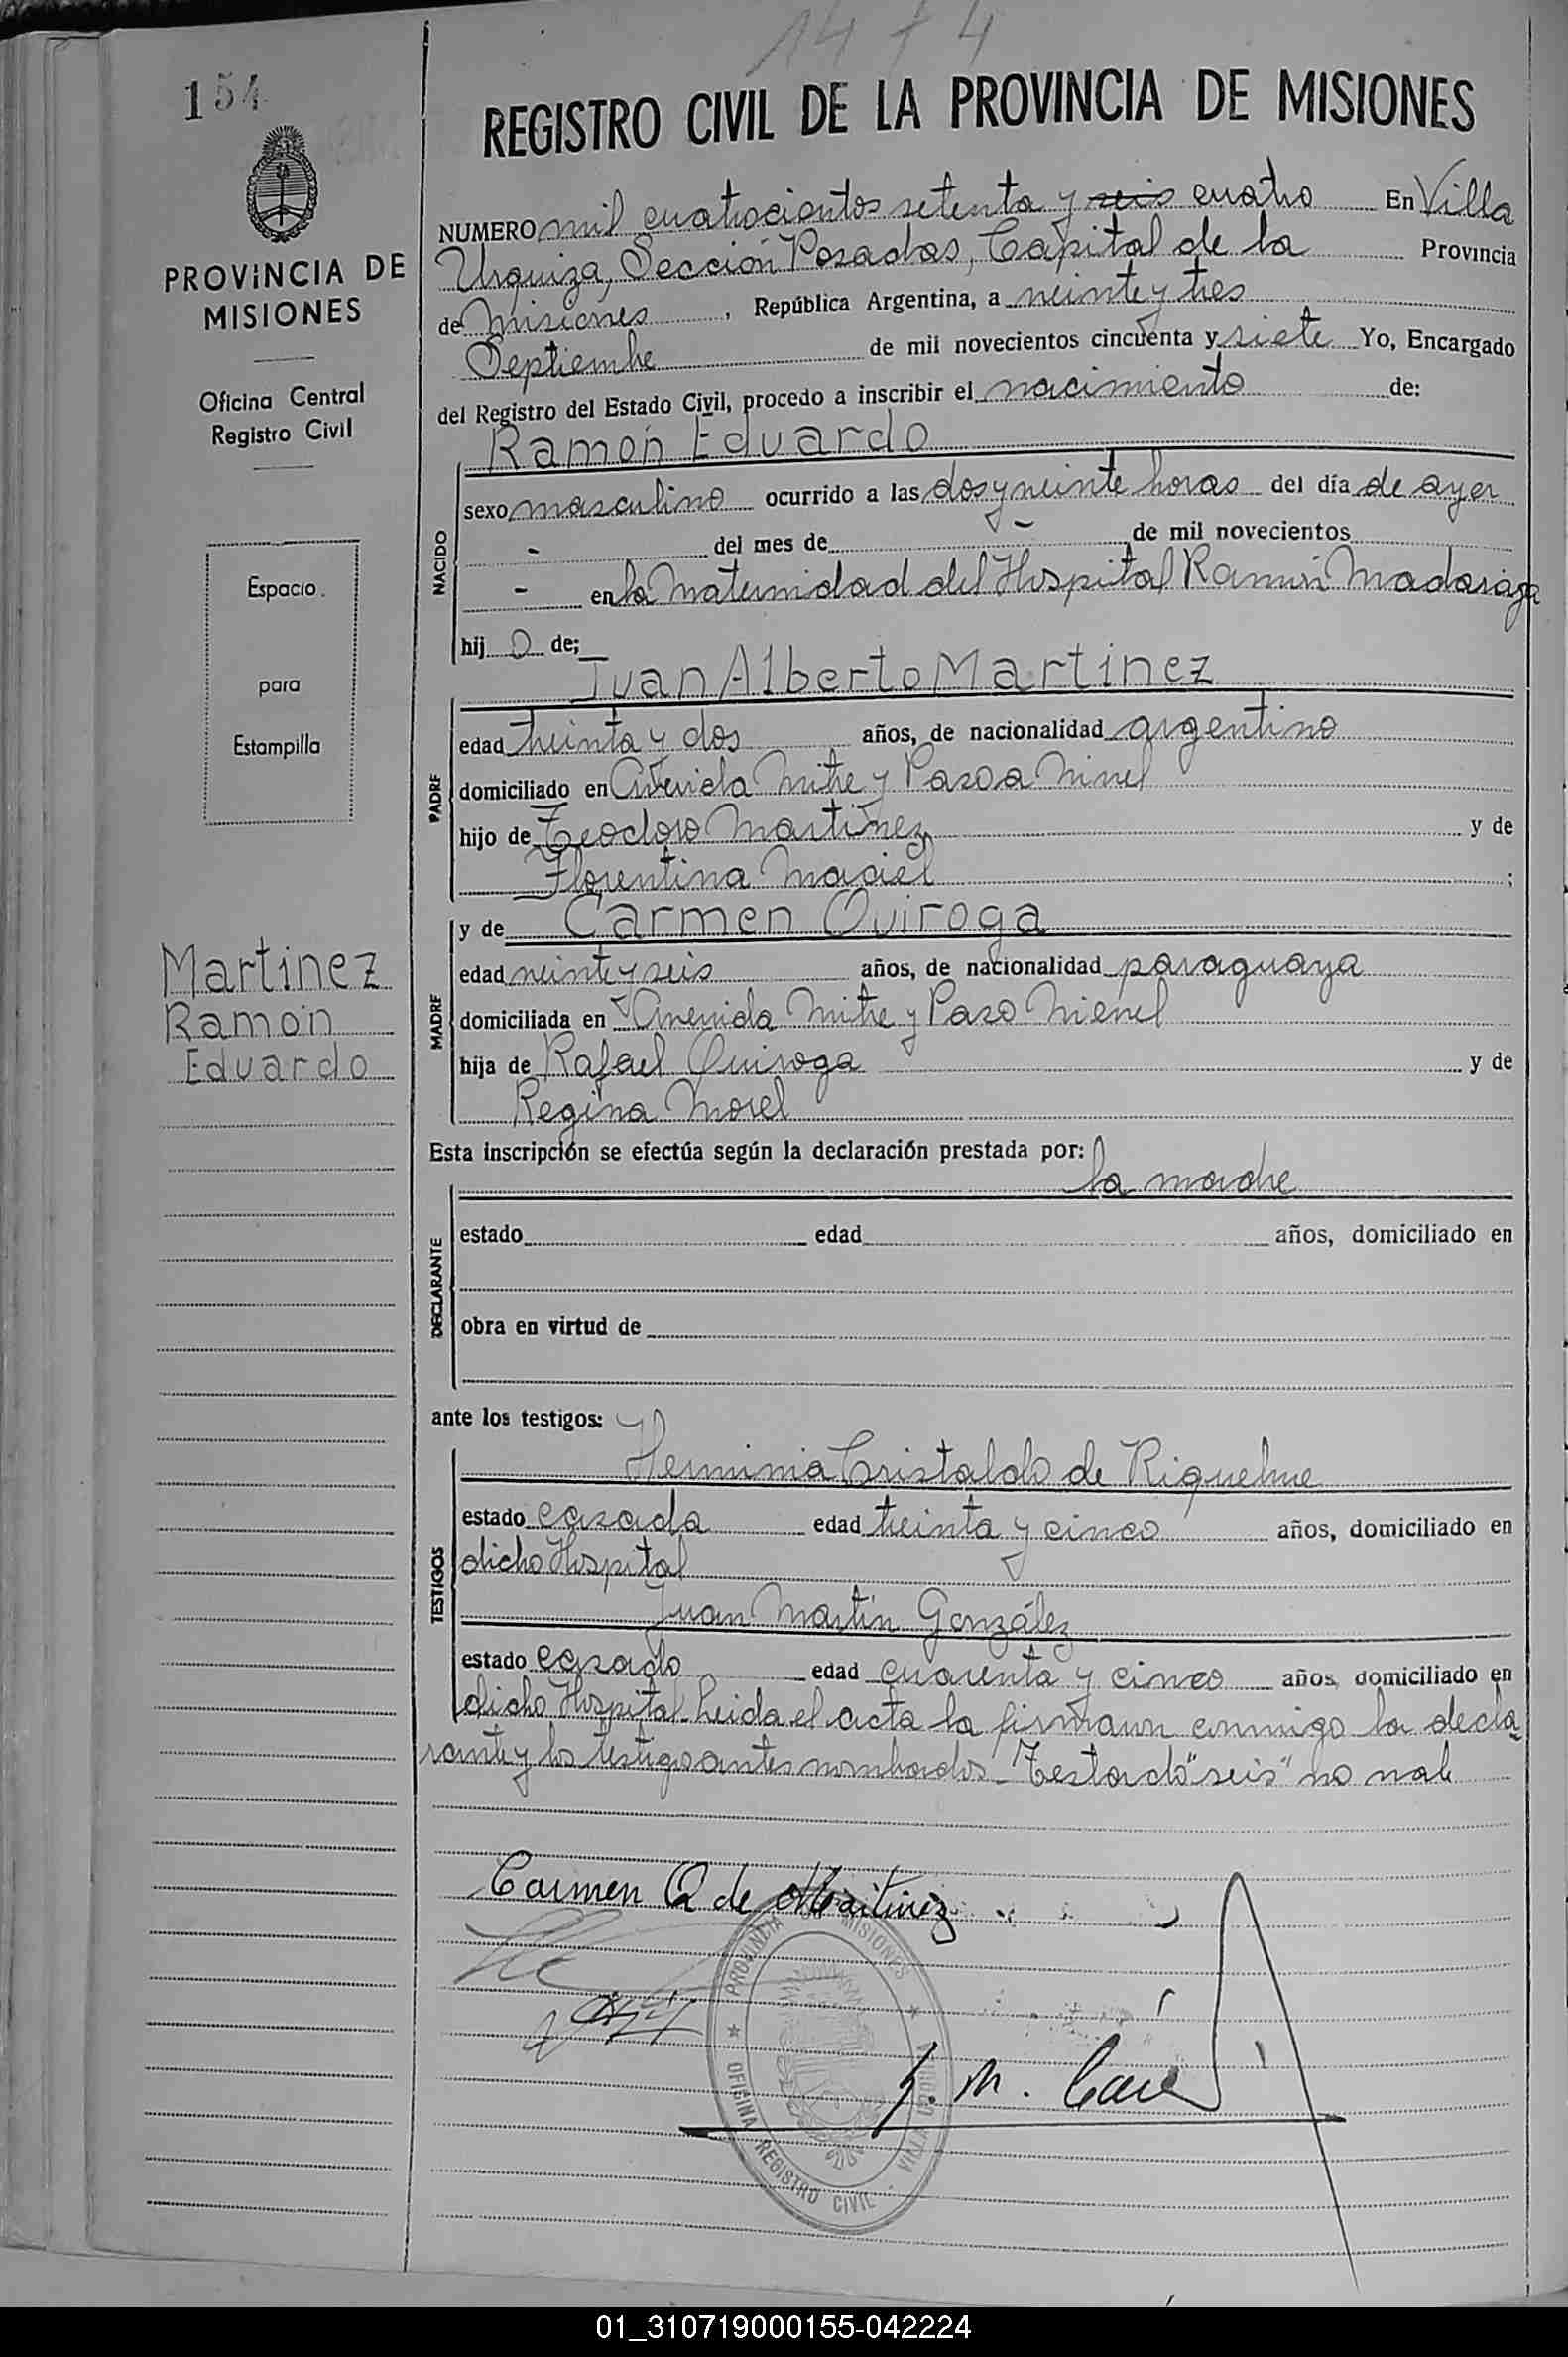 14 7 4
154
REGISTRO CIVIL DE LA PROVINCIA DE MISIONES
PROVINCIA DE
MISIONES
Oficina Central
Registro Civil
Espacio
para
Estampilla
Martinez
Ramón
Eduardo
NUMERO mil cuatrocientos setenta y seis cuatro En Villa
Urquiza, Sección Posadas, Capital de la Provincia
de Misiones, República Argentina, a veinte y tres
Septiembre de mil novecientos cincuenta y siete Yo, Encargado
del Registro del Estado Civil, procedo a inscribir el nacimiento de:
Ramón Eduardo
NACIDO
sexo masculino ocurrido a las dos y veinte horas del día de ayer
- del mes de - de mil novecientos
- en la Maternidad del Hospital Ramón Madariaga
hij o de;
Juan Alberto Martinez
PADRE
edad treinta y dos años, de nacionalidad argentino
domiciliado en Avenida Mitre y
hijo de Teodoro Martinez y de
Florentina Maciel ;
y de Carmen Quiroga
MADRE
edad veinte y seis años, de nacionalidad paraguaya
domiciliada en Avenida Mitre y Paso
hija de Rafael Quiroga y de
Regina Morel
Esta inscripción se efectúa según la declaración prestada por:
la madre
DECLARANTE
estado edad años, domiciliado en
obra en virtud de
ante los testigos:
Herminia Cristaldo de Riquelme
TESTIGOS
estado casada edad treinta y cinco años, domiciliado en
dicho Hospital
Juan Martín González
estado casado edad cuarenta y cinco años, domiciliado en
dicho Hospital. Leida el acta la firmaron conmigo la decla-
rante y los testigos antes nombrados. Testado "seis" no vale
Carmen Q de Martinez
PROVINCIA DE MISIONES
OFICINA REGISTRO CIVIL
VILLA URQUIZA
01_310719000155-042224